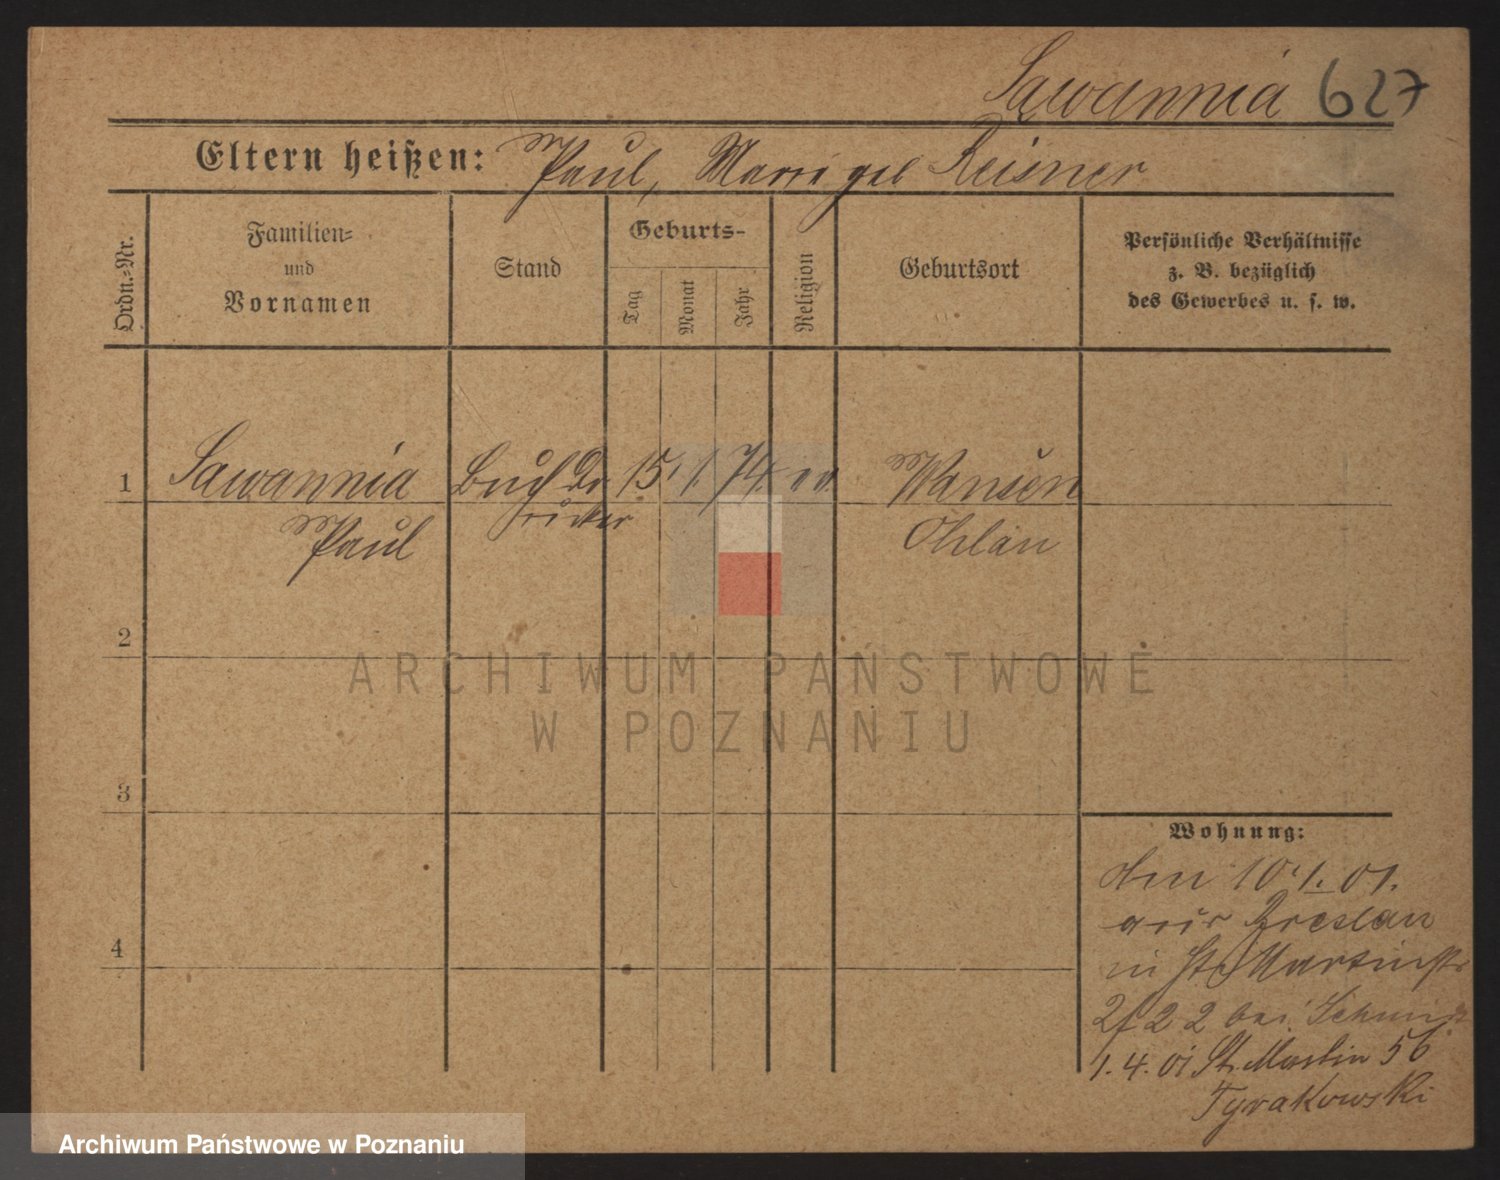 Sawannia 627
Eltern heißen: Paul, Marie geb Reisner
Ordn.-Nr.
Familien-
und
Vornamen
Stand
Geburts-
Tag
Monat
Jahr
Religion
Geburtsort
Persönliche Verhältnisse
z. B. bezüglich
des Gewerbes u. s. w.
1 Sawannia Buch Dr 15 1 74 Wansen
Paul rucker Ohlau
2
3
4
Wohnung:
den 10.1.01.
aus Breslau
in St Martinstr
22 bei Schmidt
1.4.01 St. Martin 56
Tyrakowski
ARCHIWUM PAŃSTWOWE
W POZNANIU
Archiwum Państwowe w Poznaniu